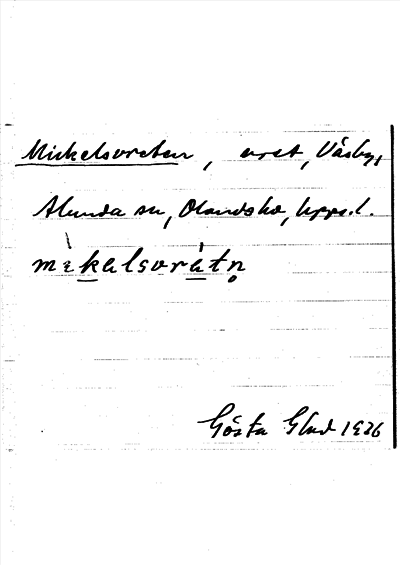 Mickelsvreten, vret, Väsby,
Alunda sn, Olandsha, Upps.l.
mɩkalsvrätn̥
Gösta Glad 1926